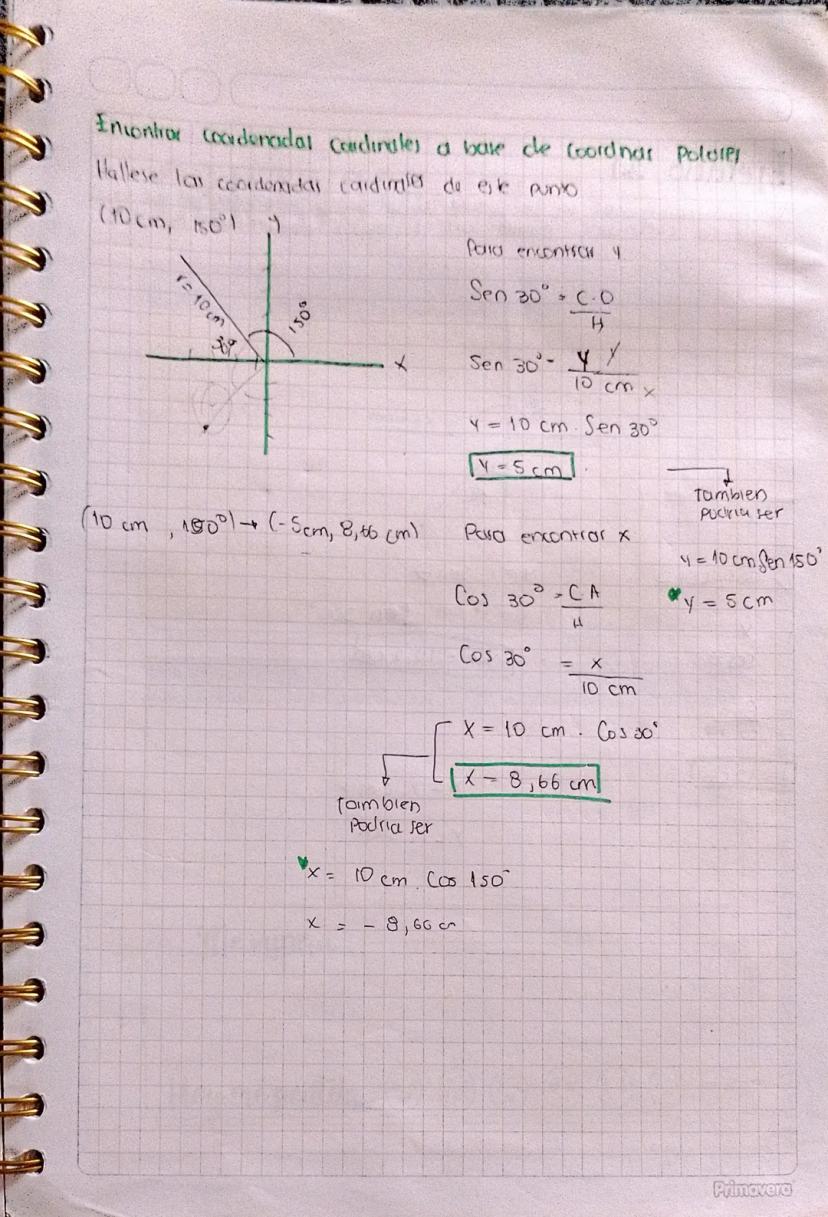 Encontrar coordenadas cardinales a base de coordnas polares
Hallese las coordenadas cardinales de este punto
(10 cm, 150°)
y
r = 10 cm
150°
30°
x
Para encontrar y
Sen 30° = C.O
H
Sen 30° = y y
10 cm x
y = 10 cm . Sen 30°
y = 5 cm
Tambien
podria ser
y = 10 cm Sen 150°
y = 5 cm
(10 cm, 150°) → (-5cm, 8,66 cm)
Para encontrar x
Cos 30° = CA
H
Cos 30° = x
10 cm
x = 10 cm . Cos 30°
x = 8,66 cm
tambien
podria ser
x = 10 cm . Cos 150°
x = - 8,66 cm
Primavera